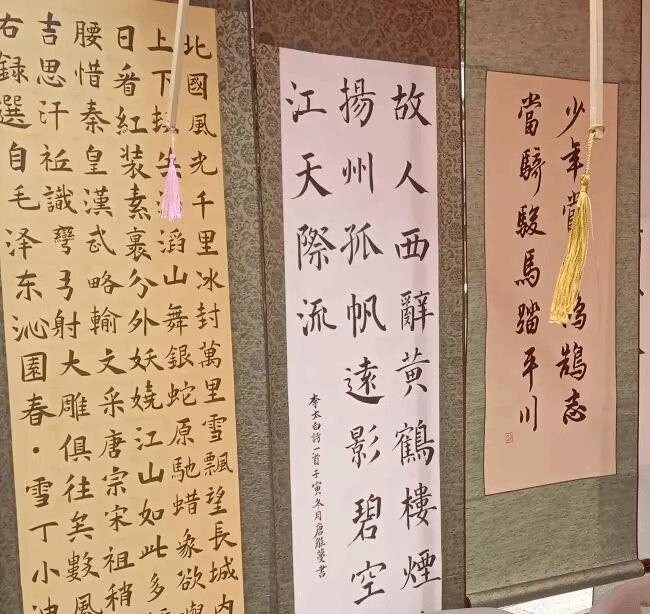 北國風光千里冰封萬里雪飄望長城内
上下 滔山舞銀蛇原馳蜡象欲
日看紅装素裹分外妖嬈江山如此多
腰惜秦皇漢武略輸文采唐宗宋祖稍
吉思汗祗識彎弓射大雕俱往矣數風
右録選自毛泽东沁園春·雪丁小
故人西辭黄鶴樓煙
揚州孤帆遠影碧空
江天際流
李太白詩一首壬寅冬月唐 書
少年當 鵠志
當騎駿馬踏平川